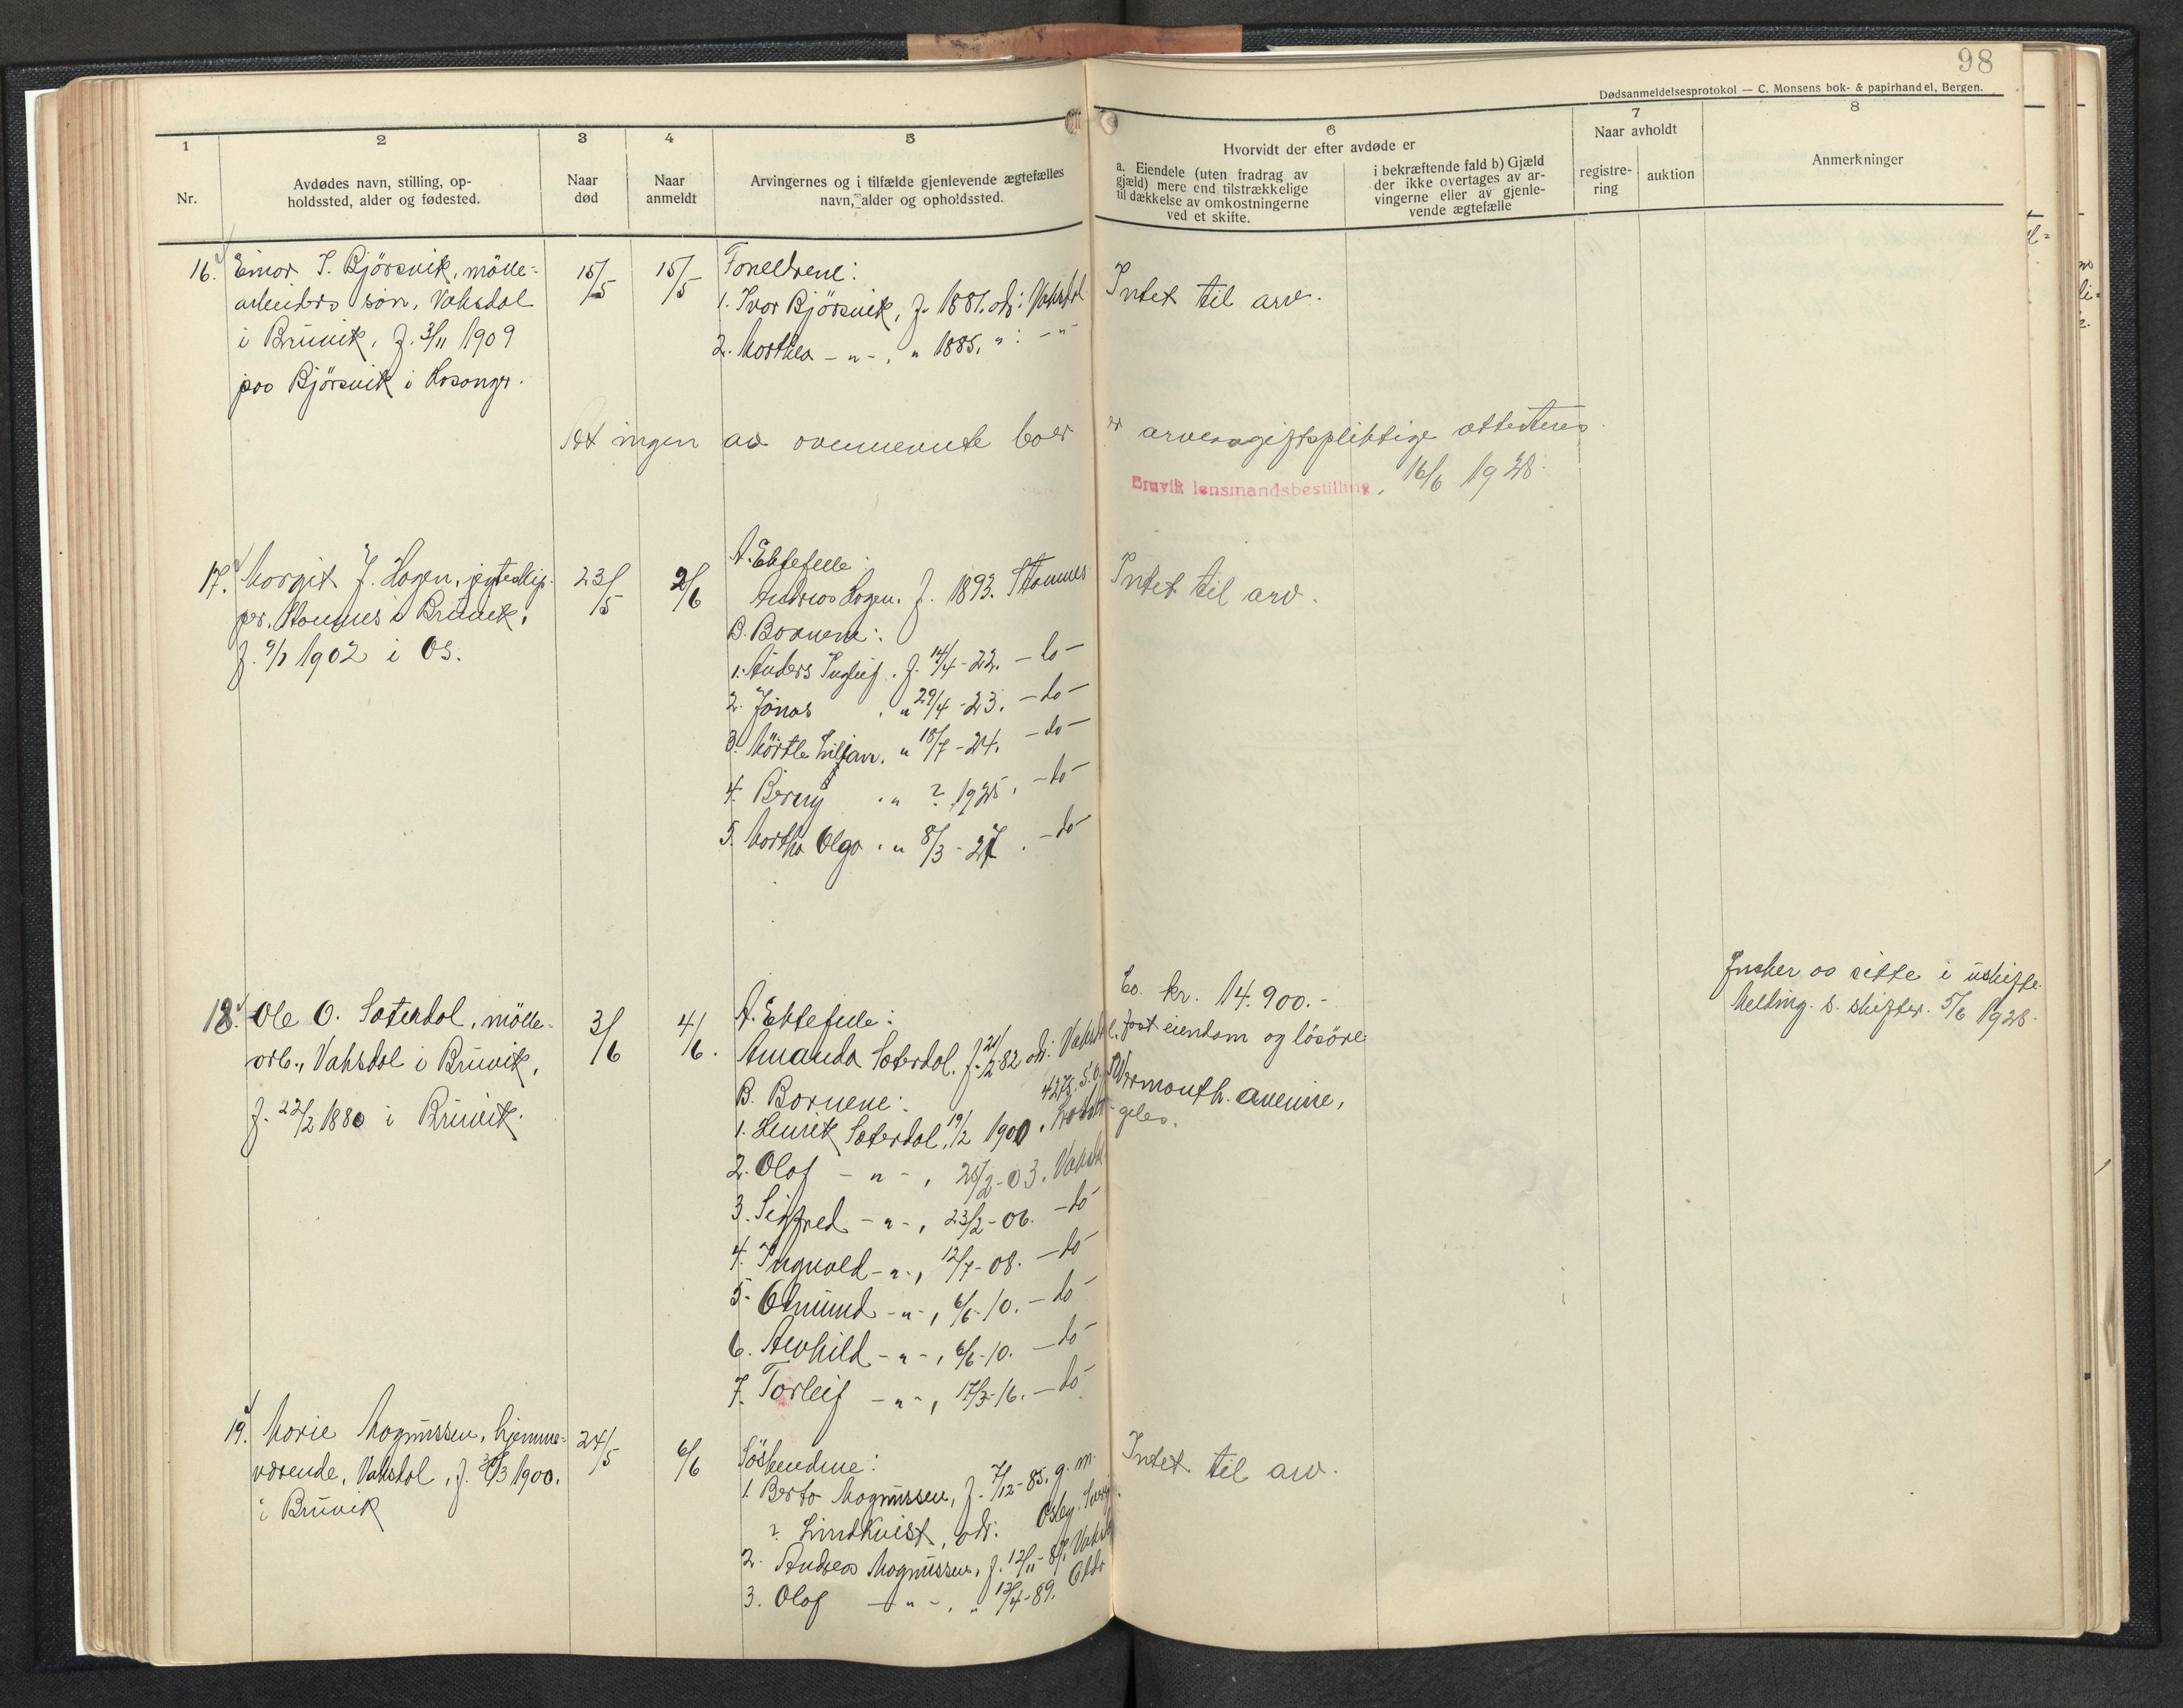 98
Dødsanmeldelsesprotokol — C. Monsens bok- & papirhandel, Bergen.
1
Nr.
2
Avdødes navn, stilling, op-
holdssted, alder og fødested.
3
Naar
død
4
Naar
anmeldt
5
Arvingernes og i tilfælde gjenlevende ægtefælles
navn, alder og opholdssted.
6
Hvorvidt der efter avdøde er
a. Eiendele (uten fradrag av
gjæld) mere end tilstrækkelige
til dækkelse av omkostningerne
ved et skifte.
i bekræftende fald b) Gjæld
der ikke overtages av ar-
vingerne eller av gjenle-
vende ægtefælle
7
Naar avholdt
registre-
ring
auktion
8
Anmerkninger
16. Einar I. Bjørsvik, mölle-
arbeiders søn, Vaksdal
i Bruvik, f. 3/11 1909
paa Bjørsvik i Hosanger.
15/5
15/5
Foreldrene:
1. Ivar Bjørsvik, f. 1881. adr: Vaksdal
2. Marthea -"-, " 1885, " : -"-
Intet til arv.
At ingen av ovennevnte boer er arveavgiftspliktige attesteres
Bruvik lensmandsbestilling, 16/6 1928.
17. Margit J. Hagen,
Stamnes i Bruvik,
1902 i Os.
23/5
2/6
A. Ektefelle:
Andreas Hagen. f. 1893. Stamnes
B. Barnene:
1. Anders Ingleif. f. 14/4-22. -do-
2. Jonas . " 29/4-23. -do-
3. Myrtle Lilian. " 18/7-24. -do-
4. Berny . " ? 1925, -do-
5. Martha Olga . " 8/3-27. -do-
Intet til arv.
18. Ole O. Sæterdal, mölle-
arb., Vaksdal i Bruvik,
f. 22/2 1880 i Bruvik.
3/6
4/6.
A. Ektefelle:
Amanda Sæterdal. f. 21/2 82 adr: Vaksdal.
B. Barnene:
1. Henrik Sæterdal, 19/2 1900.
4273. S. Wermouth. Avenue,
geles.
2. Olaf -"-, 25/2-03. Vaksdal
3. Sigfred -"-, 23/2-06. -do-
4. Ingvald -"-, 12/7-08. -do-
5. Osmund -"-, 6/6-10. -do-
6. Alvhild -"-, 6/6-10. -do-
7. Torleif -"-, 17/3-16. -do-
Ca. kr. 14.900.-
fast eiendom og lösöre
Ønsker aa sitte i uskifte.
Melding. s. skifter. 5/6 1928.
19. Marie Magnussen, hjemme-
værende, Vaksdal, f. 1900.
i Bruvik
24/5
6/6
Söskendene:
1. Berta Magnussen, f. 7/12-85, g. m.
? Lindkvist, adr.
2. Andreas Magnussen, f. 12/11-87, Vaksdal
3. Olaf -"-, " 12/4-89.
Intet til arv.